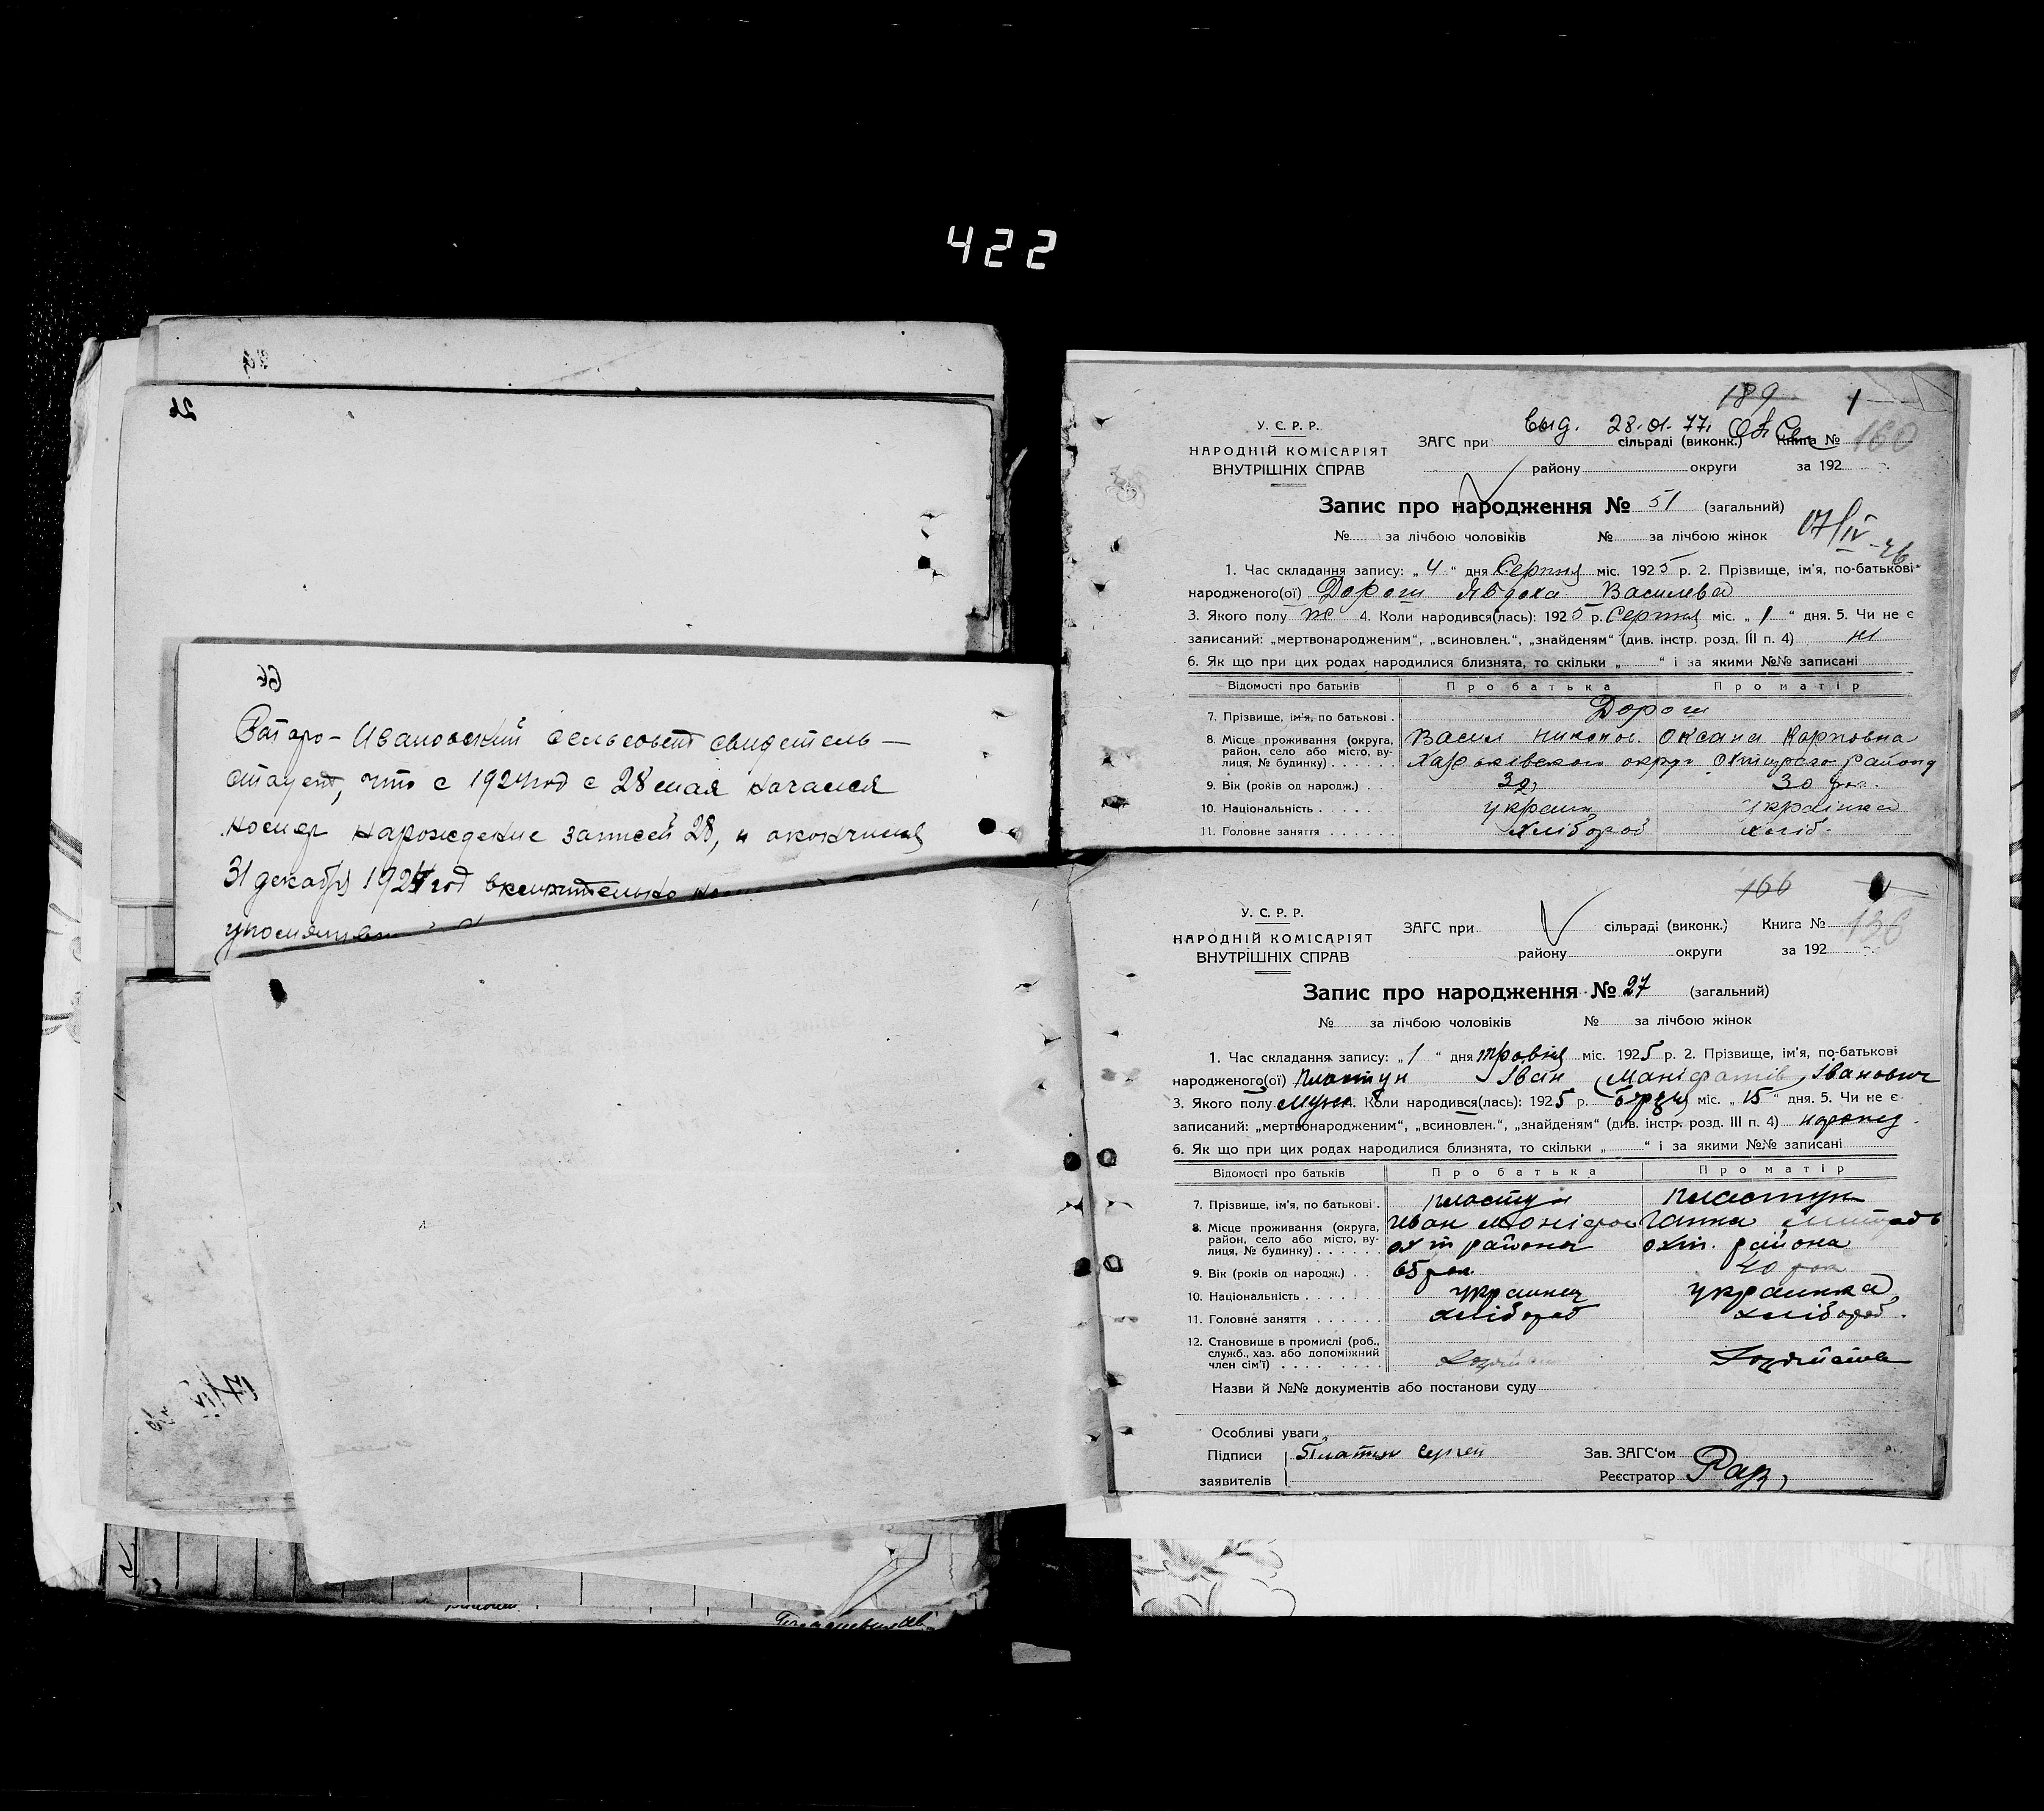 422
сельсовет свидетель-
ствует, что с 1924 год с 28 мая начался
номер нарождение записей 28, и окончился
31 декабря 1924 год включительно
189 1
выд. 28.01.77.
У. С. Р. Р.
НАРОДНІЙ КОМІСАРІЯТ
ВНУТРІШНІХ СПРАВ
ЗАГС при сільраді (виконк.) Книга № 160
району округи за 192
Запис про народження № 51 (загальний)
№ за лічбою чоловіків № за лічбою жінок
17/IV-76
1. Час складання запису: „4“ дня Серпня міс. 1925 р. 2. Прізвище, ім'я, по-батькові
народженого(ої) Дорош Явдоха Василева
3. Якого полу ж 4. Коли народився(лась): 1925 р. Серпня міс. „1“ дня. 5. Чи не є
записаний: „мертвонародженим“, „всиновлен.“, „знайденям“ (див. інстр. розд. III п. 4) ні
6. Як що при цих родах народилися близнята, то скільки „ “ і за якими №№ записані
Відомості про батьків Про батька Про матір
7. Прізвище, ім'я, по батькові Дорош
8. Місце проживання (округа, район, село або місто, вулиця, № будинку) Васил Никонов. Оксана Карповна
Харьківского округ Охтирсько району
9. Вік (років од народж.) 32 30 рок.
10. Національність украин українка
11. Головне заняття хлібороб хліб.
166
У. С. Р. Р.
НАРОДНІЙ КОМІСАРІЯТ
ВНУТРІШНІХ СПРАВ
ЗАГС при сільраді (виконк.) Книга № 136
району округи за 192
Запис про народження № 27 (загальний)
№ за лічбою чоловіків № за лічбою жінок
1. Час складання запису: „1“ дня травня міс. 1925 р. 2. Прізвище, ім'я, по-батькові
народженого(ої) Пластун Іван Іванович
3. Якого полу муж. 4. Коли народився(лась): 1925 р. міс. „15“ дня. 5. Чи не є
записаний: „мертвонародженим“, „всиновлен.“, „знайденям“ (див. інстр. розд. III п. 4)
6. Як що при цих родах народилися близнята, то скільки „ “ і за якими №№ записані
Відомості про батьків Про батька Про матір
7. Прізвище, ім'я, по батькові Пластун Пластун
8. Місце проживання (округа, район, село або місто, вулиця, № будинку) Иван Ганна
охт района охт. района
9. Вік (років од народж.) 65 рок. 40 рок
10. Національність украинец украинка
11. Головне заняття хлібороб хлібороб.
12. Становище в промислі (роб., служб., хаз. або допоміжний член сім'ї)
Назви й №№ документів або постанови суду
Особливі уваги
Підписи заявителів Сергей
Зав. ЗАГС'ом
Реєстратор